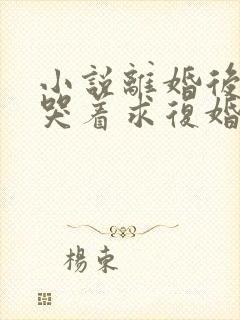 小說離婚後
哭着求復婚
楊束